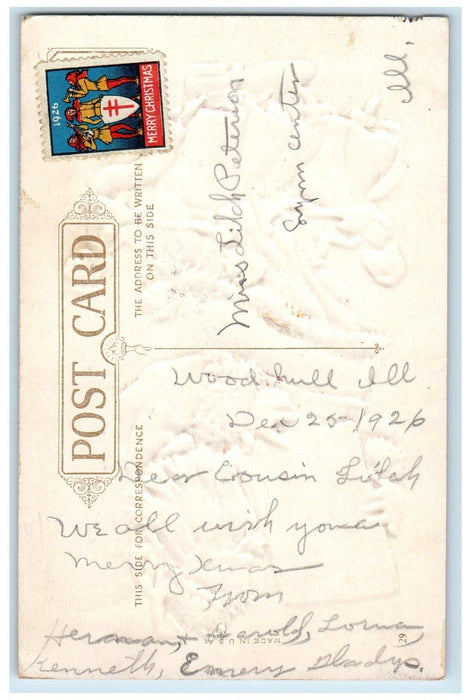 1926
MERRY CHRISTMAS
POST CARD
THE ADDRESS TO BE WRITTEN
ON THIS SIDE
Miss Lilah Peterson
Lynn Center
Ill.
THIS SIDE FOR CORRESPONDENCE
Woodhull Ill
Dec 25-1926
Dear Cousin Lilah
We all wish you a
Merry Xmas
From
Herman, + Harold, Lorna,
Kenneth, Emery Gladys.
MADE IN U.S.A.
29